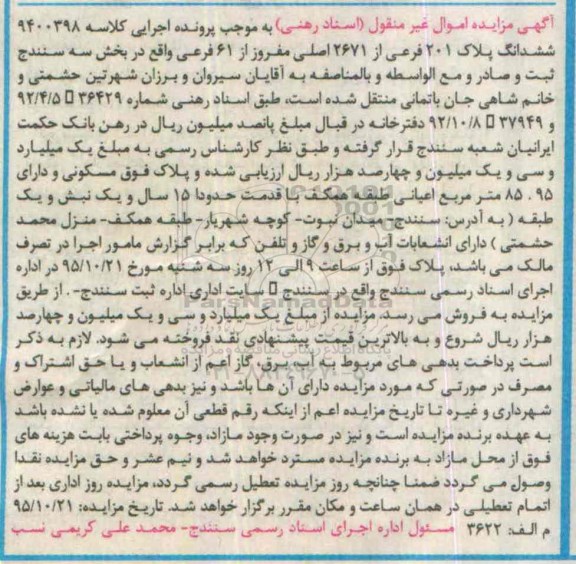 آگهی مزایده اموال غیر منقول (اسناد رهنی) به موجب پرونده اجرایی کلاسه ۹۴۰۰۳۹۸
ششدانگ پلاک ۲۰۱ فرعی از ۲۶۷۱ اصلی مفروز از ۶۱ فرعی واقع در بخش سه سنندج
ثبت و صادر و مع الواسطه و بالمناصفه به آقایان سیروان و برزان شهرتین حشمتی و
خانم شاهی جان باتمانی منتقل شده است، طبق اسناد رهنی شماره ۳۶۴۲۹ □ ۹۲/۴/۵
و ۳۷۹۴۹ □ ۹۲/۱۰/۸ دفترخانه در قبال مبلغ پانصد میلیون ریال در رهن بانک حکمت
ایرانیان شعبه سنندج قرار گرفته و طبق نظر کارشناس رسمی به مبلغ یک میلیارد
و سی و یک میلیون و چهارصد هزار ریال ارزیابی شده و پلاک فوق مسکونی و دارای
۸۵ ،۹۵ متر مربع اعیانی طبقه همکف با قدمت حدودا ۱۵ سال و یک نبش و یک
طبقه ( به آدرس: سنندج- میدان نبوت- کوچه شهریار- طبقه همکف- منزل محمد
حشمتی ) دارای انشعابات آب و برق و گاز و تلفن که برابر گزارش مامور اجرا در تصرف
مالک می باشد، پلاک فوق از ساعت ۹ الی ۱۲ روز سه شنبه مورخ ۹۵/۱۰/۲۱ در اداره
اجرای اسناد رسمی سنندج واقع در سنندج □ سایت اداری اداره ثبت سنندج-. از طریق
مزایده به فروش می رسد. مزایده از مبلغ یک میلیارد و سی و یک میلیون و چهارصد
هزار ریال شروع و به بالاترین قیمت پیشنهادی نقد فروخته می شود. لازم به ذکر
است پرداخت بدهی های مربوط به آب، برق، گاز اعم از انشعاب و یا حق اشتراک و
مصرف در صورتی که مورد مزایده دارای آن ها باشد و نیز بدهی های مالیاتی و عوارض
شهرداری و غیره تا تاریخ مزایده اعم از اینکه رقم قطعی آن معلوم شده یا نشده باشد
به عهده برنده مزایده است و نیز در صورت وجود مازاد، وجوه پرداختی بابت هزینه های
فوق از محل مازاد به برنده مزایده مسترد خواهد شد و نیم عشر و حق مزایده نقدا
وصول می گردد ضمنا چنانچه روز مزایده تعطیل رسمی گردد، مزایده روز اداری بعد از
اتمام تعطیلی در همان ساعت و مکان مقرر برگزار خواهد شد. تاریخ مزایده: ۹۵/۱۰/۲۱
م الف: ۳۶۲۲ مسئول اداره اجرای اسناد رسمی سنندج- محمد علی کریمی نسب
ParsNamadData
پایگاه اطلاع رسانی مناقصه و مزایده